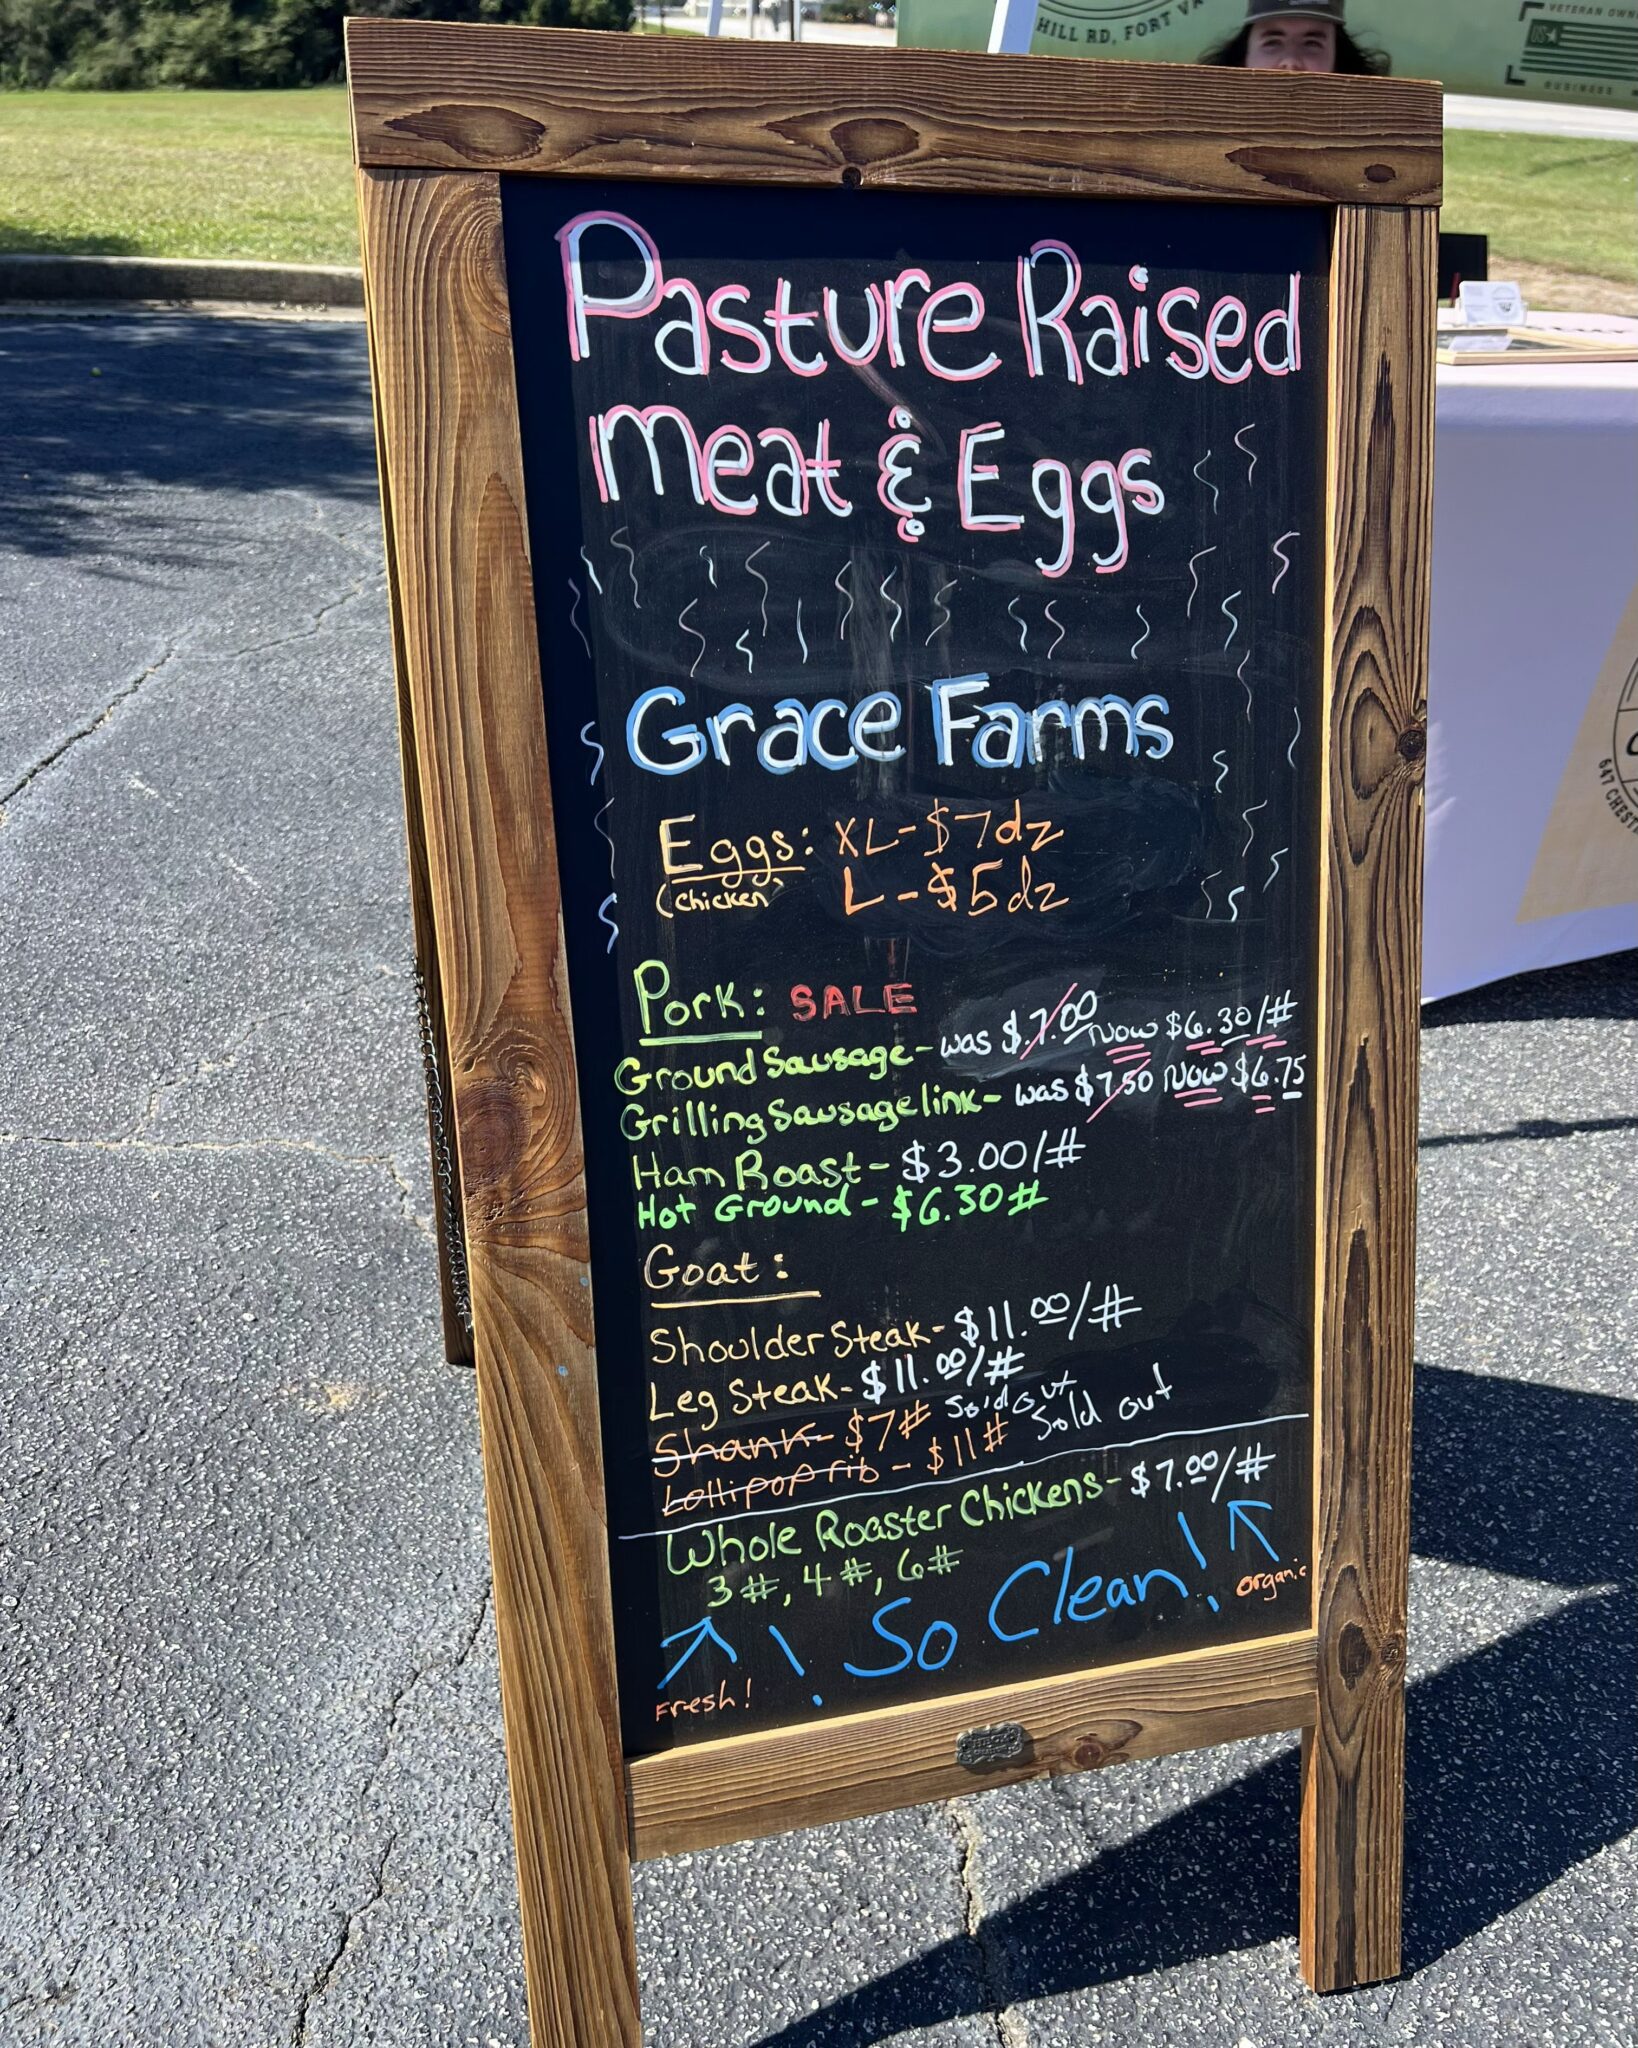 HILL RD, FORT VA
VETERAN OWN
USA
BUSINESS
Pasture Raised
Meat & Eggs
Grace Farms
Eggs: XL-$7dz
(chicken) L-$5dz
Pork: SALE
Ground Sausage- was $7.00 Now $6.30/#
Grilling Sausage link- was $7.50 Now $6.75
Ham Roast- $3.00/#
Hot Ground- $6.30#
Goat:
Shoulder Steak- $11.00/#
Leg Steak- $11.00/#
Shank- $7# Sold out
Lollipop rib- $11# Sold out
Whole Roaster Chickens- $7.00/#
3#, 4#, 6#
! So Clean!
organic
Fresh!
647 CHEST